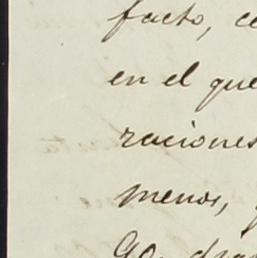 facto,
en el que
raciones
menos,